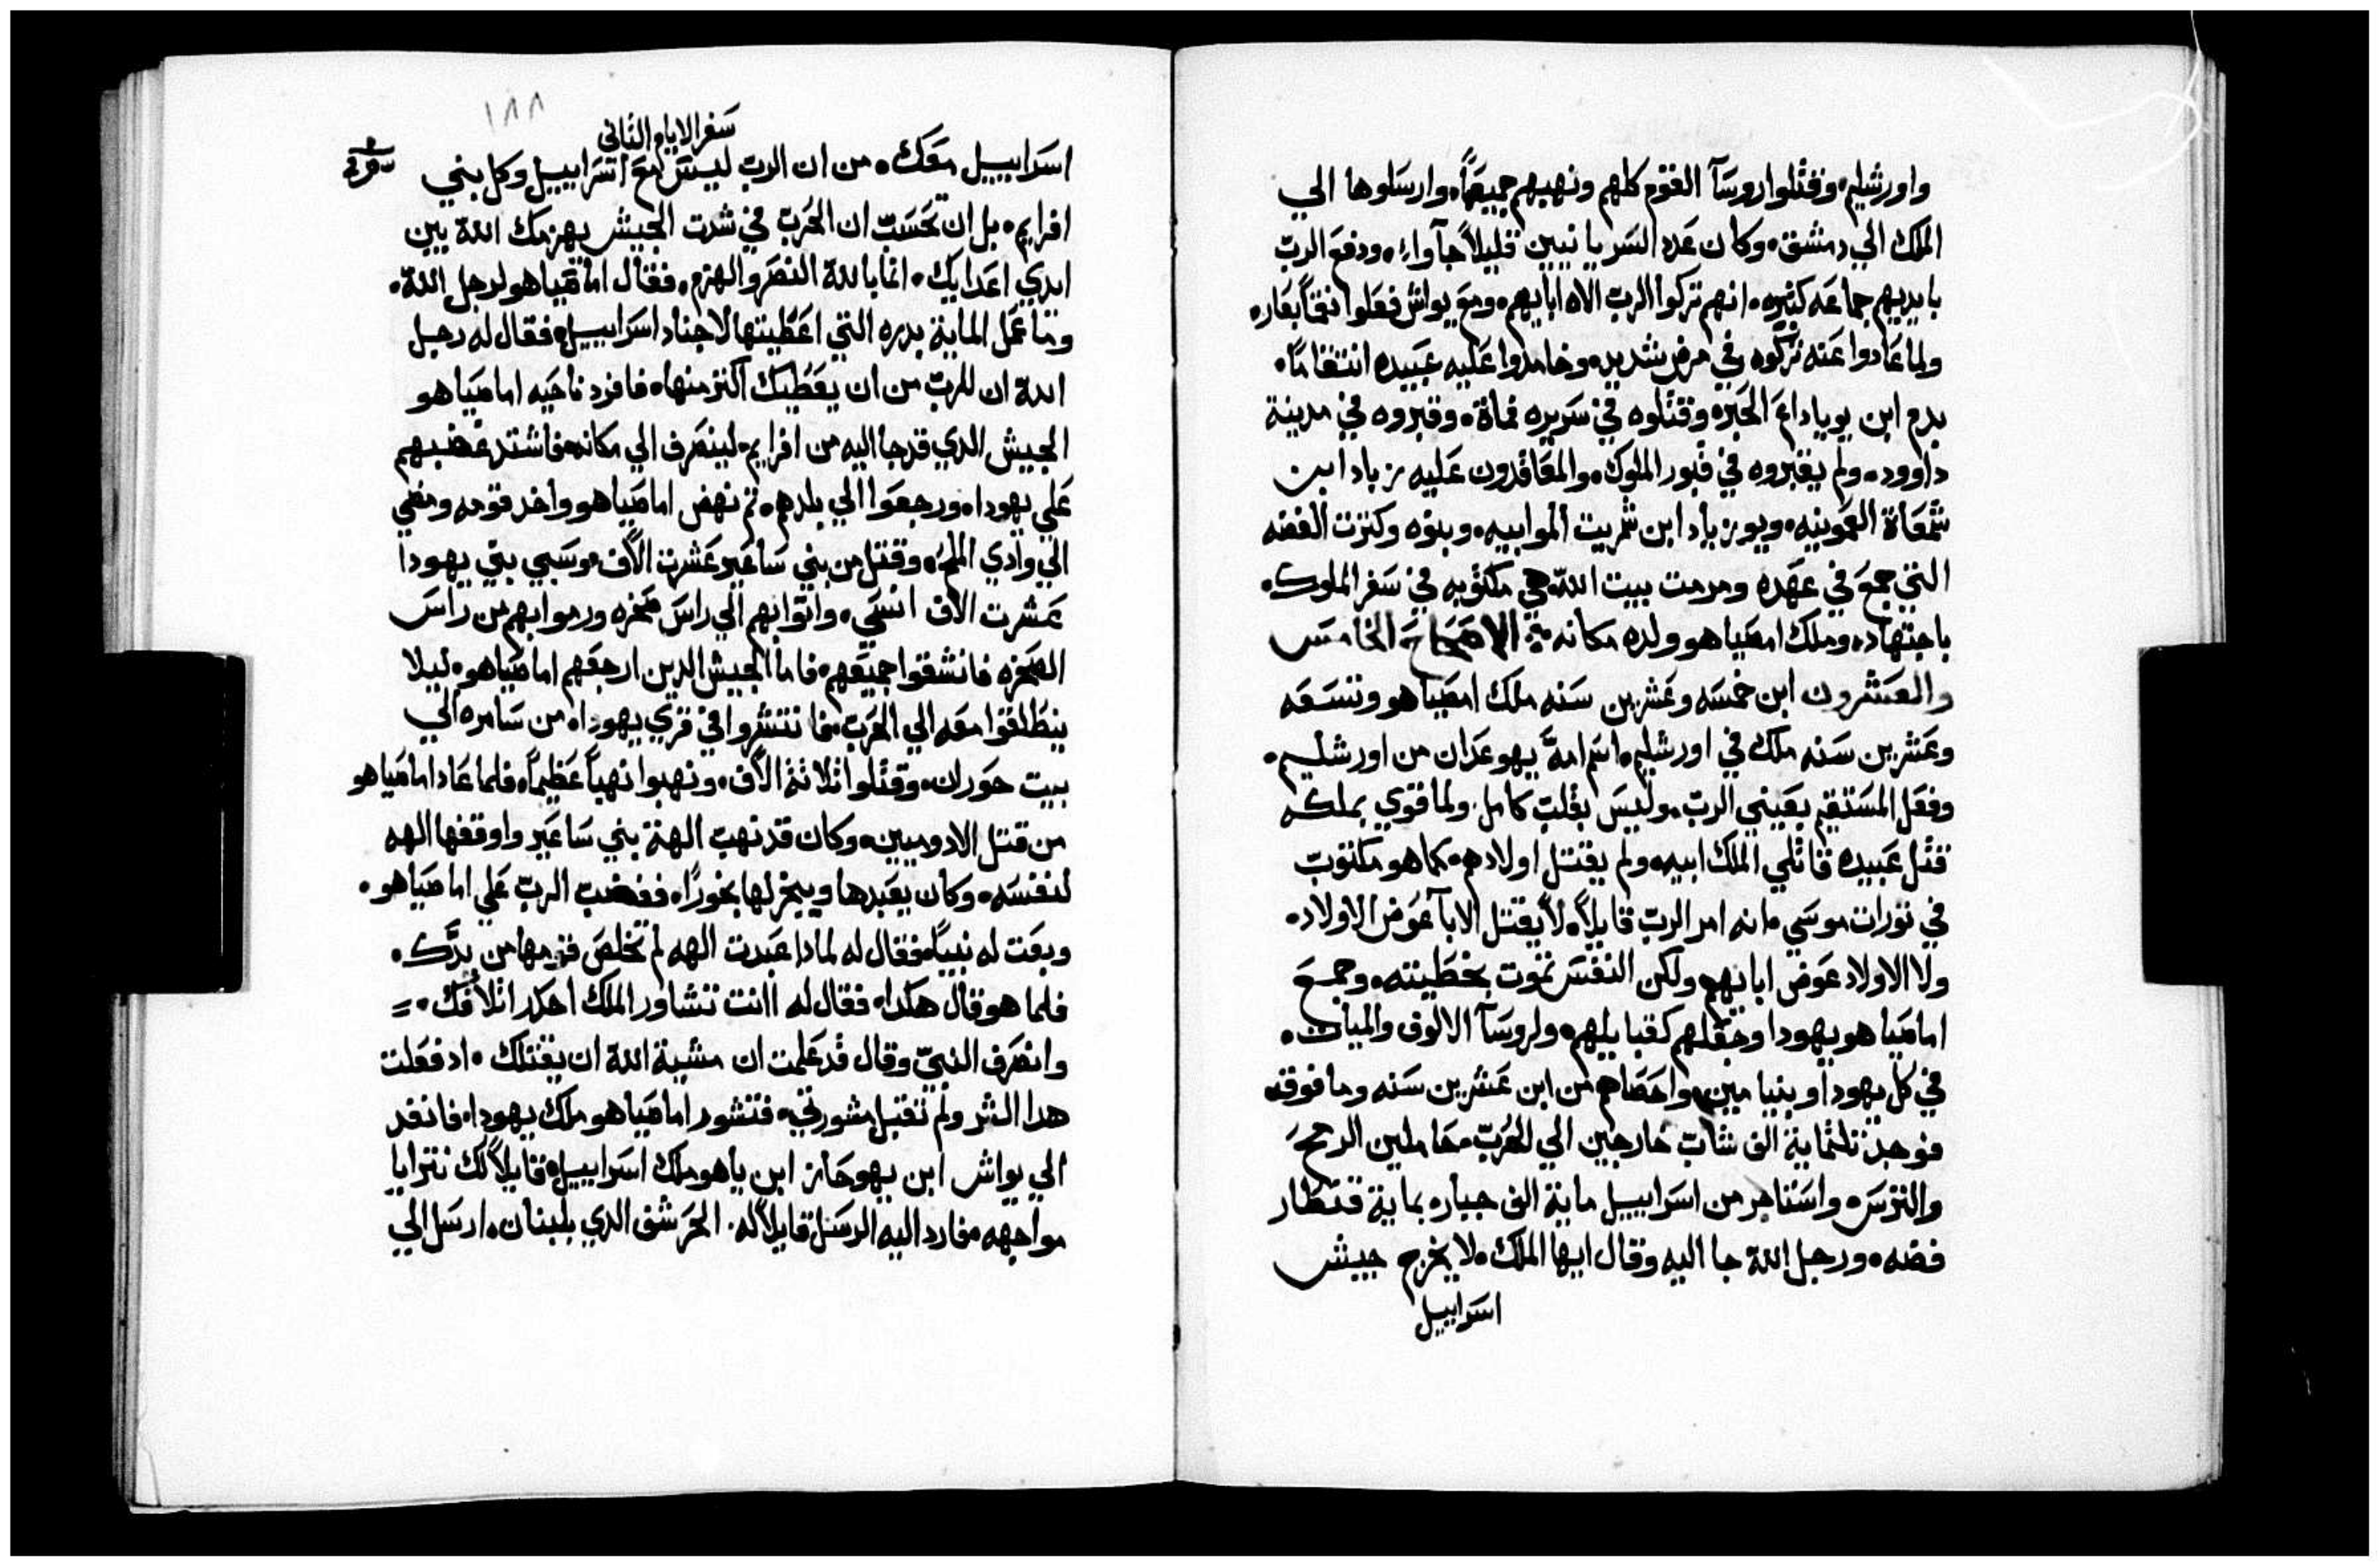 واورشليم، وقتلوا روسآ القوم كلهم ونهبهم جميعاً، وارسلوها الي
الملك الي دمشق، وكان عدد السريانيين قليلاً جآواء، ودفع الرب
بايديهم جماعه كثيره، انهم تركوا الرب الاه ابايهم، ومع يواش فعلوا نقماً بعاره
ولما عادوا عنه تركوه في مرض شديد، وخامروا عليه عبيده انتقاماً،
بدم ابن يوياداع الحبره وقتلوه في سريره فماة، وقبروه في مدينة
داوود، ولم يقبروه في قبور الملوك، والمعاقدون عليه زباد ابن
شمعاة العمونيه، ويوزباد ابن شمريت الموابيه، وبنوه وكنزت الفضه
التي جمع في عهده ومرمت بيت اللّه هي مكتوبه في سفر الملوك،
باجتهاد، وملك امصياهو ولده مكانه؛ الاصحاح الخامس
والعشرون ابن خمسه وعشرين سنه ملك امصياهو وتسعه
وعشرين سنه ملك في اورشليم، اسم امهً يهوعدان من اورشليم،
وفعل المستقيم بعيني الرب، وليس بقلب كامل. ولما قوي بملكه
قتل عبيده قاتلي الملك ابيه، ولم يقتل اولادهم، كما هو مكتوب
في تورات موسي، انه امر الرب قايلاً، لا يقتل الابآ عوض الاولاد،
ولا الاولاد عوض ابايهم، ولكن النفس تموت بخطيته، وجمع
اماصيا هو يهودا وجعلهم كقبايلهم، ولروسآ الالوف والميات،
في كل يهودا وبنيامين، واحصاهم من ابن عشرين سنه وما فوقه
فوجد تلثماية الف شاب خارجين الي الحرب، حاملين الرمح
والترس، واستاجر من اسراييل ماية الف جباره بماية قنطار
فضه، ورجل اللّه جا اليه وقال ايها الملك، لا يخرج جيش
اسراييل
١٨٨
سفر الايام الثاني
اسراييل معك، من ان الرب ليس مع اسراييل وكل بني
افرايم، بل ان تحسب ان الحرب في شدت الجيش يهزمك اللّه بين
ايدي اعدايك، انما باللّه النصر والهزم، فقال اماصياهو لرجل اللّه،
وما عمل الماية بدره التي اعطيتها لاجناد اسراييل، فقال له رجل
اللّه ان للرب من ان يعطيك اكثر منها، فافرد ناحيه اماصياهو
الجيش الدي قد جا اليه من افرايم، لينصرف الي مكانه، فاشتد غضبهم
علي يهودا، ورجعوا الي بلدهم، تم نهض اماصياهو واخد قومه ومضي
الي وادي الملح، وقتل من بني ساعير عشرت الاف، وسبي بني يهودا
عشرت الاف انسي، واتوا بهم الي راس صخره ورموا بهم من راس
الصخره فانشقوا جميعهم، فاما الجيش الدين ارجعهم اماصياهو، ليلا
ينطلقوا معه الي الحرب، فانتشروا في قري يهودا، من سامره الي
بيت حوران، وقتلوا تلاتة الاف، ونهبوا نهباً عظيماً، فلما عاد اماصياهو
من قتل الادوميين، وكان قد نهب الهة بني ساعير واوقفها الهه
لنفسه، وكان يعبدها ويبخر لها بخوراً، فغضب الرب علي اماصياهو،
وبعت له نبياً، فقال له لمادا عبدت الهه لم تخلص قومها من يدك،
فلما هو قال هكدا، فقال له اانت تشاور الملك احدر اتلافك،
وانصرف النبيّ وقال قد علمت ان مشية اللّه ان يقتلك، اد فعلت
هدا الشر ولم تقبل مشورتي، فتشور اماصياهو ملك يهودا، فانفد
الي يواش ابن يهوحاز ابن ياهو ملك اسراييل، قايلاً لك نترايا
مواجهه، فارد اليه الرسل قايلاً له. الحرشف الدي بلبنان، ارسل الي